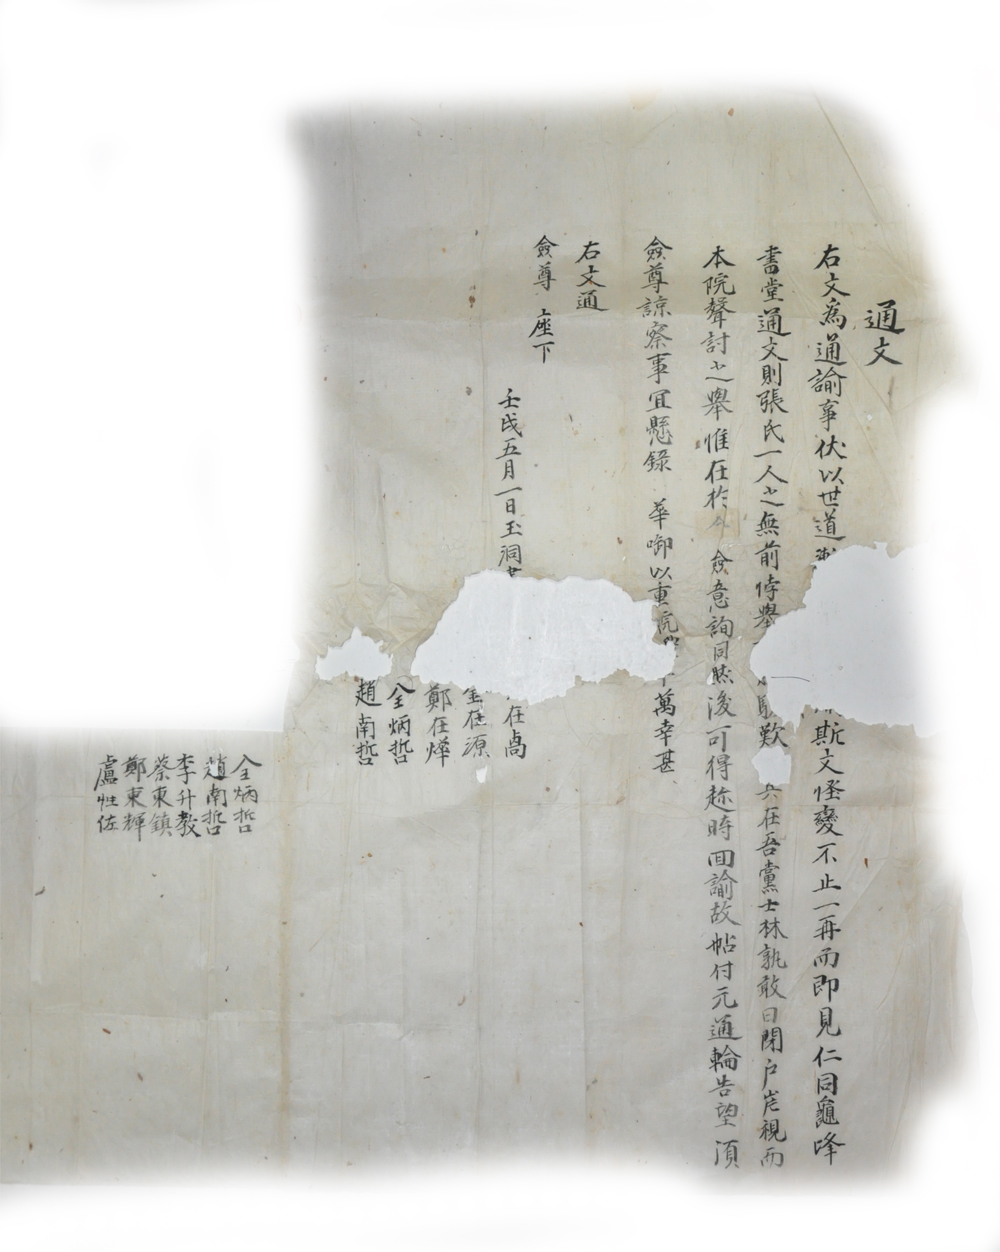 通文
右文為通諭事伏以世道 斯文怪變不止一再而即見仁同龜峰
書堂通文則張氏一人之無前悖擧 歎 在吾黨士林孰敢曰閉户岸視而
本院聲討之擧惟在於 僉意詢同然後可得趂時回諭故帖付元通輪告望須
僉尊諒察事宜懸錄 華啣以重院 萬幸甚
右文通
僉尊 座下
壬戌五月一日玉洞
在卨
在源
鄭在燁
全炳哲
趙南哲
全炳哲
趙南哲
李升敎
蔡東鎮
鄭東輝
盧性佐